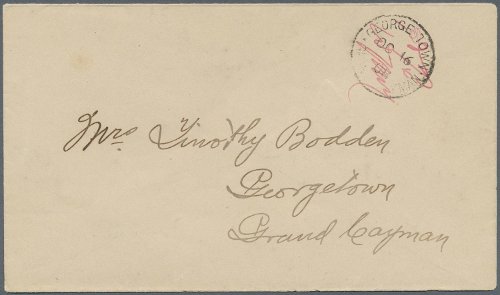 GEORGE TOWN
OC 16
Mrs Timothy Bodden
Georgetown
Grand Cayman